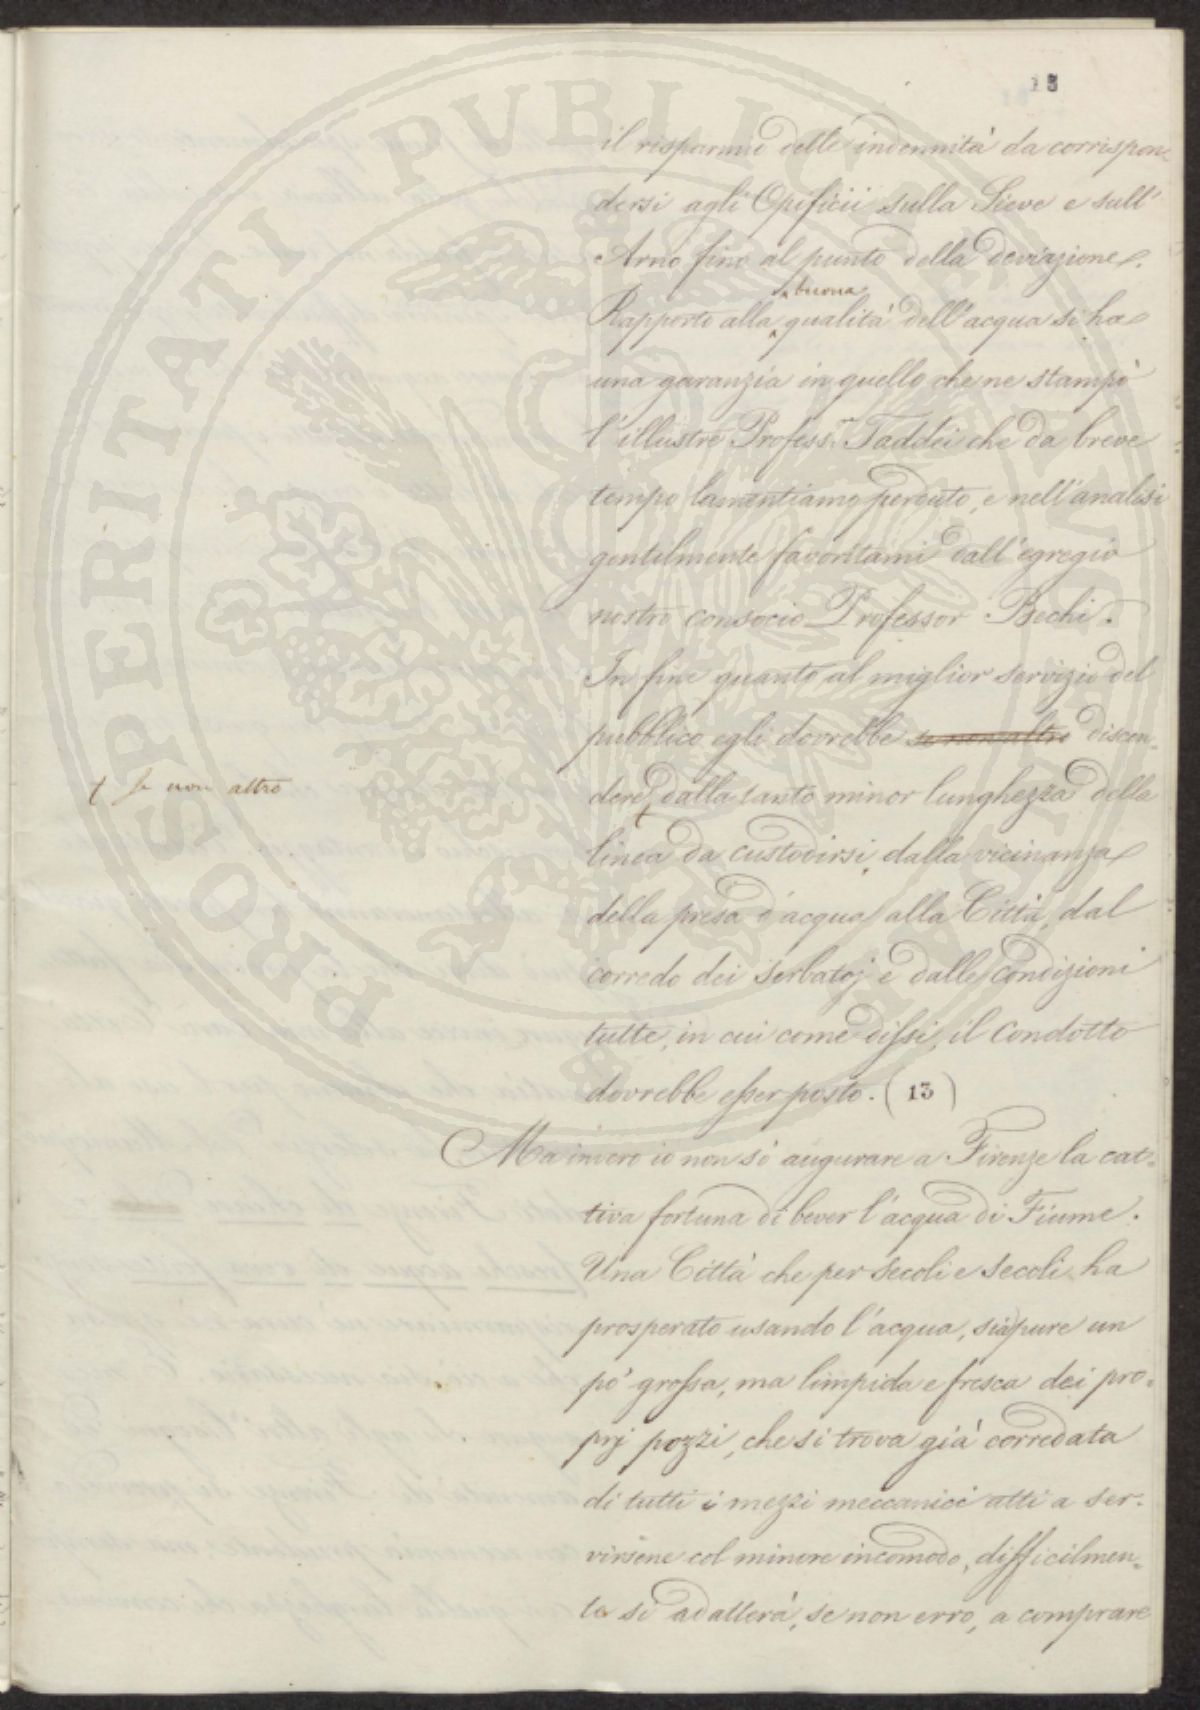 13
il risparmio delle indennità da corrispon-
dersi agli Opificii sulla Sieve e sull'
Arno fino al punto della deviazione.
Rapporto alla buona qualità dell'acqua si ha
una garanzia in quello che ne stampò
l'illustre Profess.r Taddei che da breve
tempo lamentiamo perduto, e nell'analisi
gentilmente favoritami dall'egregio
nostro consocio Professor Bechi.
In fine quanto al miglior servizio del
pubblico egli dovrebbe se non altro discen-
Se non altro
dere dalla tanto minor lunghezza della
linea da custodirsi, dalla vicinanza
della presa d'acqua alla Città, dal
corredo dei serbatoj e dalle condizioni
tutte, in cui come dissi, il Condotto
dovrebbe esser posto. (13)
Ma invero io non sò augurare a Firenze la cat-
tiva fortuna di bever l'acqua di Fiume.
Una Città che per secoli e secoli ha
prosperato usando l'acqua, sia pure un
pò grossa, ma limpida e fresca dei pro-
prj pozzi, che si trova già corredata
di tutti i mezzi meccanici atti a ser-
virsene col minore incomodo, difficilmen-
te si adatterà, se non erro, a comprare
PROSPERITATI PUBLICAE